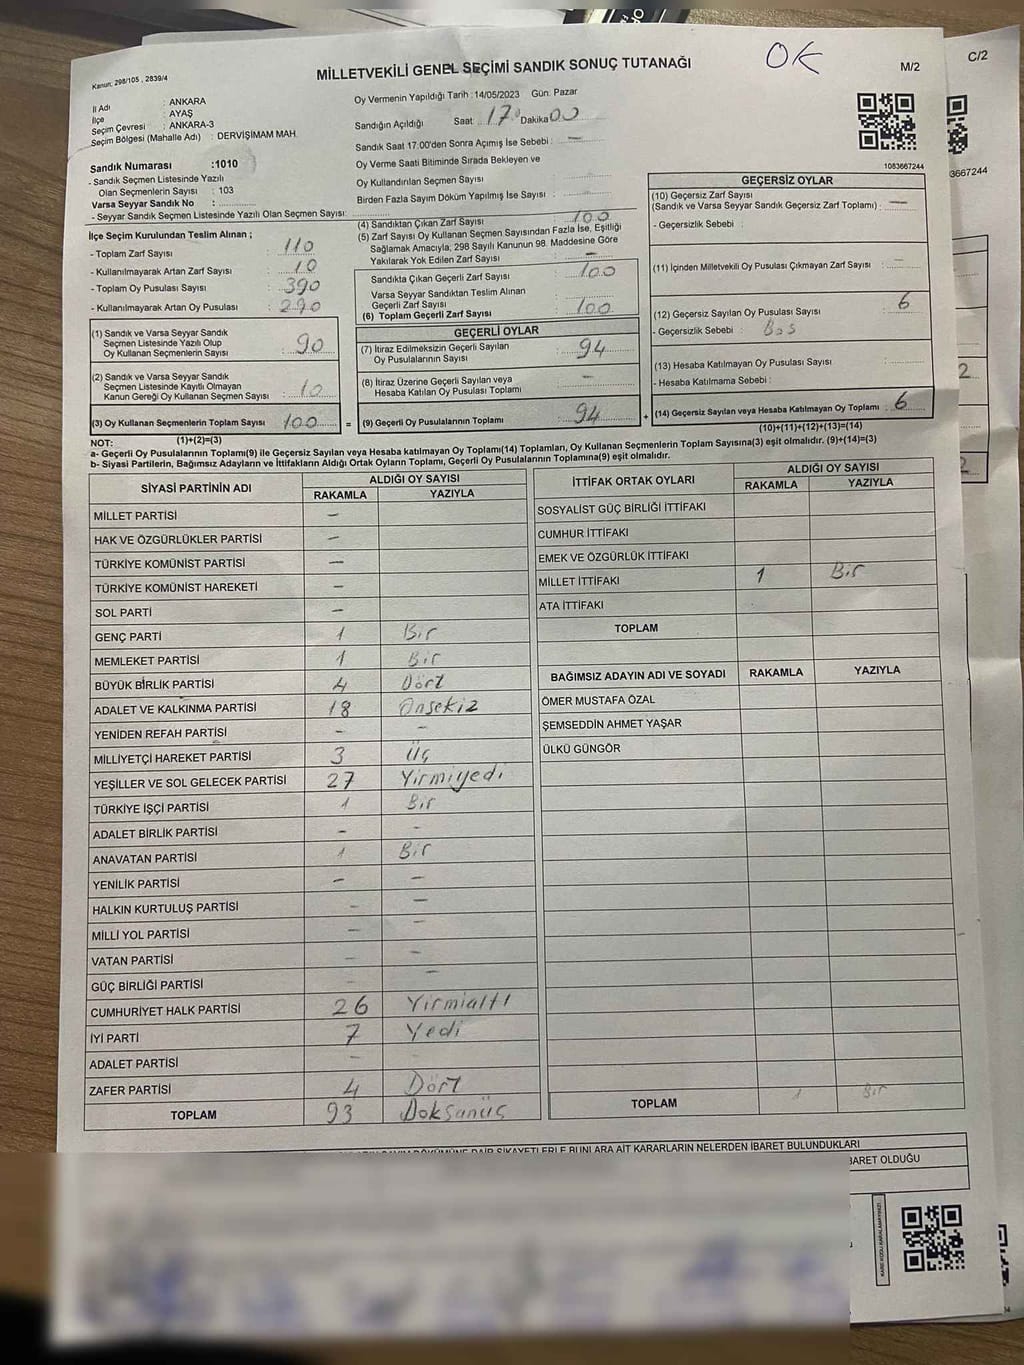 OK
C/2
Kanun, 298/105 , 2839/4
MİLLETVEKİLİ GENEL SEÇİMİ SANDIK SONUÇ TUTANAĞI
M/2
İl Adı : ANKARA
İlçe : AYAŞ
Seçim Çevresi : ANKARA-3
Seçim Bölgesi (Mahalle Adı) : DERVİŞİMAM MAH.
Sandık Numarası :1010
- Sandık Seçmen Listesinde Yazılı
Olan Seçmenlerin Sayısı : 103
Varsa Seyyar Sandık No :
- Seyyar Sandık Seçmen Listesinde Yazılı Olan Seçmen Sayısı:
Oy Vermenin Yapıldığı Tarih :14/05/2023 Gün: Pazar
Sandığın Açıldığı Saat : 17 Dakika 00
Sandık Saat 17.00'den Sonra Açımış İse Sebebi : —
Oy Verme Saati Bitiminde Sırada Bekleyen ve
Oy Kullandırılan Seçmen Sayısı :
Birden Fazla Sayım Döküm Yapılmış İse Sayısı :
1083667244
3667244
İlçe Seçim Kurulundan Teslim Alınan ;
- Toplam Zarf Sayısı : 110
- Kullanılmayarak Artan Zarf Sayısı : 10
- Toplam Oy Pusulası Sayısı : 390
- Kullanılmayarak Artan Oy Pusulası : 290
(1) Sandık ve Varsa Seyyar Sandık
Seçmen Listesinde Yazılı Olup
Oy Kullanan Seçmenlerin Sayısı : 90
(2) Sandık ve Varsa Seyyar Sandık
Seçmen Listesinde Kayıtlı Olmayan
Kanun Gereği Oy Kullanan Seçmen Sayısı : 10
(3) Oy Kullanan Seçmenlerin Toplam Sayısı : 100
(1)+(2)=(3)
(4) Sandıktan Çıkan Zarf Sayısı : 100
(5) Zarf Sayısı Oy Kullanan Seçmen Sayısından Fazla İse, Eşitliği
Sağlamak Amacıyla, 298 Sayılı Kanunun 98. Maddesine Göre
Yakılarak Yok Edilen Zarf Sayısı : —
Sandıkta Çıkan Geçerli Zarf Sayısı : 100
Varsa Seyyar Sandıktan Teslim Alınan
Geçerli Zarf Sayısı :
(6) Toplam Geçerli Zarf Sayısı : 100
GEÇERLİ OYLAR
(7) İtiraz Edilmeksizin Geçerli Sayılan
Oy Pusulalarının Sayısı : 94
(8) İtiraz Üzerine Geçerli Sayılan veya
Hesaba Katılan Oy Pusulası Toplamı : —
= (9) Geçerli Oy Pusulalarının Toplamı : 94 +
GEÇERSİZ OYLAR
(10) Geçersiz Zarf Sayısı
(Sandık ve Varsa Seyyar Sandık Geçersiz Zarf Toplamı) : —
- Geçersizlik Sebebi :
(11) İçinden Milletvekili Oy Pusulası Çıkmayan Zarf Sayısı : —
(12) Geçersiz Sayılan Oy Pusulası Sayısı : 6
- Geçersizlik Sebebi : Boş
(13) Hesaba Katılmayan Oy Pusulası Sayısı :
- Hesaba Katılmama Sebebi :
(14) Geçersiz Sayılan veya Hesaba Katılmayan Oy Toplamı : 6
(10)+(11)+(12)+(13)=(14)
NOT:
a- Geçerli Oy Pusulalarının Toplamı(9) ile Geçersiz Sayılan veya Hesaba Katılmayan Oy Toplamı(14) Toplamları, Oy Kullanan Seçmenlerin Toplam Sayısına(3) eşit olmalıdır. (9)+(14)=(3)
b- Siyasi Partilerin, Bağımsız Adayların ve İttifakların Aldığı Ortak Oyların Toplamı, Geçerli Oy Pusulalarının Toplamına(9) eşit olmalıdır.
SİYASİ PARTİNİN ADI ALDIĞI OY SAYISI
RAKAMLA YAZIYLA
MİLLET PARTİSİ —
HAK VE ÖZGÜRLÜKLER PARTİSİ —
TÜRKİYE KOMÜNİST PARTİSİ —
TÜRKİYE KOMÜNİST HAREKETİ —
SOL PARTİ —
GENÇ PARTİ 1 Bir
MEMLEKET PARTİSİ 1 Bir
BÜYÜK BİRLİK PARTİSİ 4 Dört
ADALET VE KALKINMA PARTİSİ 18 Onsekiz
YENİDEN REFAH PARTİSİ — —
MİLLİYETÇİ HAREKET PARTİSİ 3 Üç
YEŞİLLER VE SOL GELECEK PARTİSİ 27 Yirmiyedi
TÜRKİYE İŞÇİ PARTİSİ 1 Bir
ADALET BİRLİK PARTİSİ — —
ANAVATAN PARTİSİ 1 Bir
YENİLİK PARTİSİ — —
HALKIN KURTULUŞ PARTİSİ — —
MİLLİ YOL PARTİSİ — —
VATAN PARTİSİ — —
GÜÇ BİRLİĞİ PARTİSİ — —
CUMHURİYET HALK PARTİSİ 26 Yirmialtı
İYİ PARTİ 7 Yedi
ADALET PARTİSİ — —
ZAFER PARTİSİ 4 Dört
TOPLAM 93 Doksanüç
İTTİFAK ORTAK OYLARI ALDIĞI OY SAYISI
RAKAMLA YAZIYLA
SOSYALİST GÜÇ BİRLİĞİ İTTİFAKI
CUMHUR İTTİFAKI
EMEK VE ÖZGÜRLÜK İTTİFAKI
MİLLET İTTİFAKI 1 Bir
ATA İTTİFAKI
TOPLAM
BAĞIMSIZ ADAYIN ADI VE SOYADI RAKAMLA YAZIYLA
ÖMER MUSTAFA ÖZAL
ŞEMSEDDİN AHMET YAŞAR
ÜLKÜ GÜNGÖR
TOPLAM 1 Bir
DAİR ŞİKAYETLERLE BUNLARA AİT KARARLARIN NELERDEN İBARET BULUNDUKLARI
BARET OLDUĞU